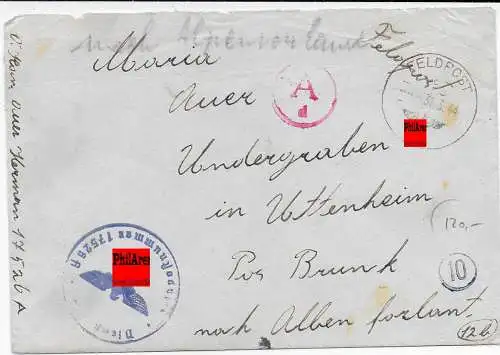 nach Alpenvorland
Feldpost
FELDPOST
30.3.44
Maria
Auer
Undergraben
in Uttenheim
Pos Brunk
nach Alben forlant
A
d
10
120,-
12b
Feldpostnummer 17526 A
Dienst
PhilArea
PhilArea
Auer Herman 17526 A